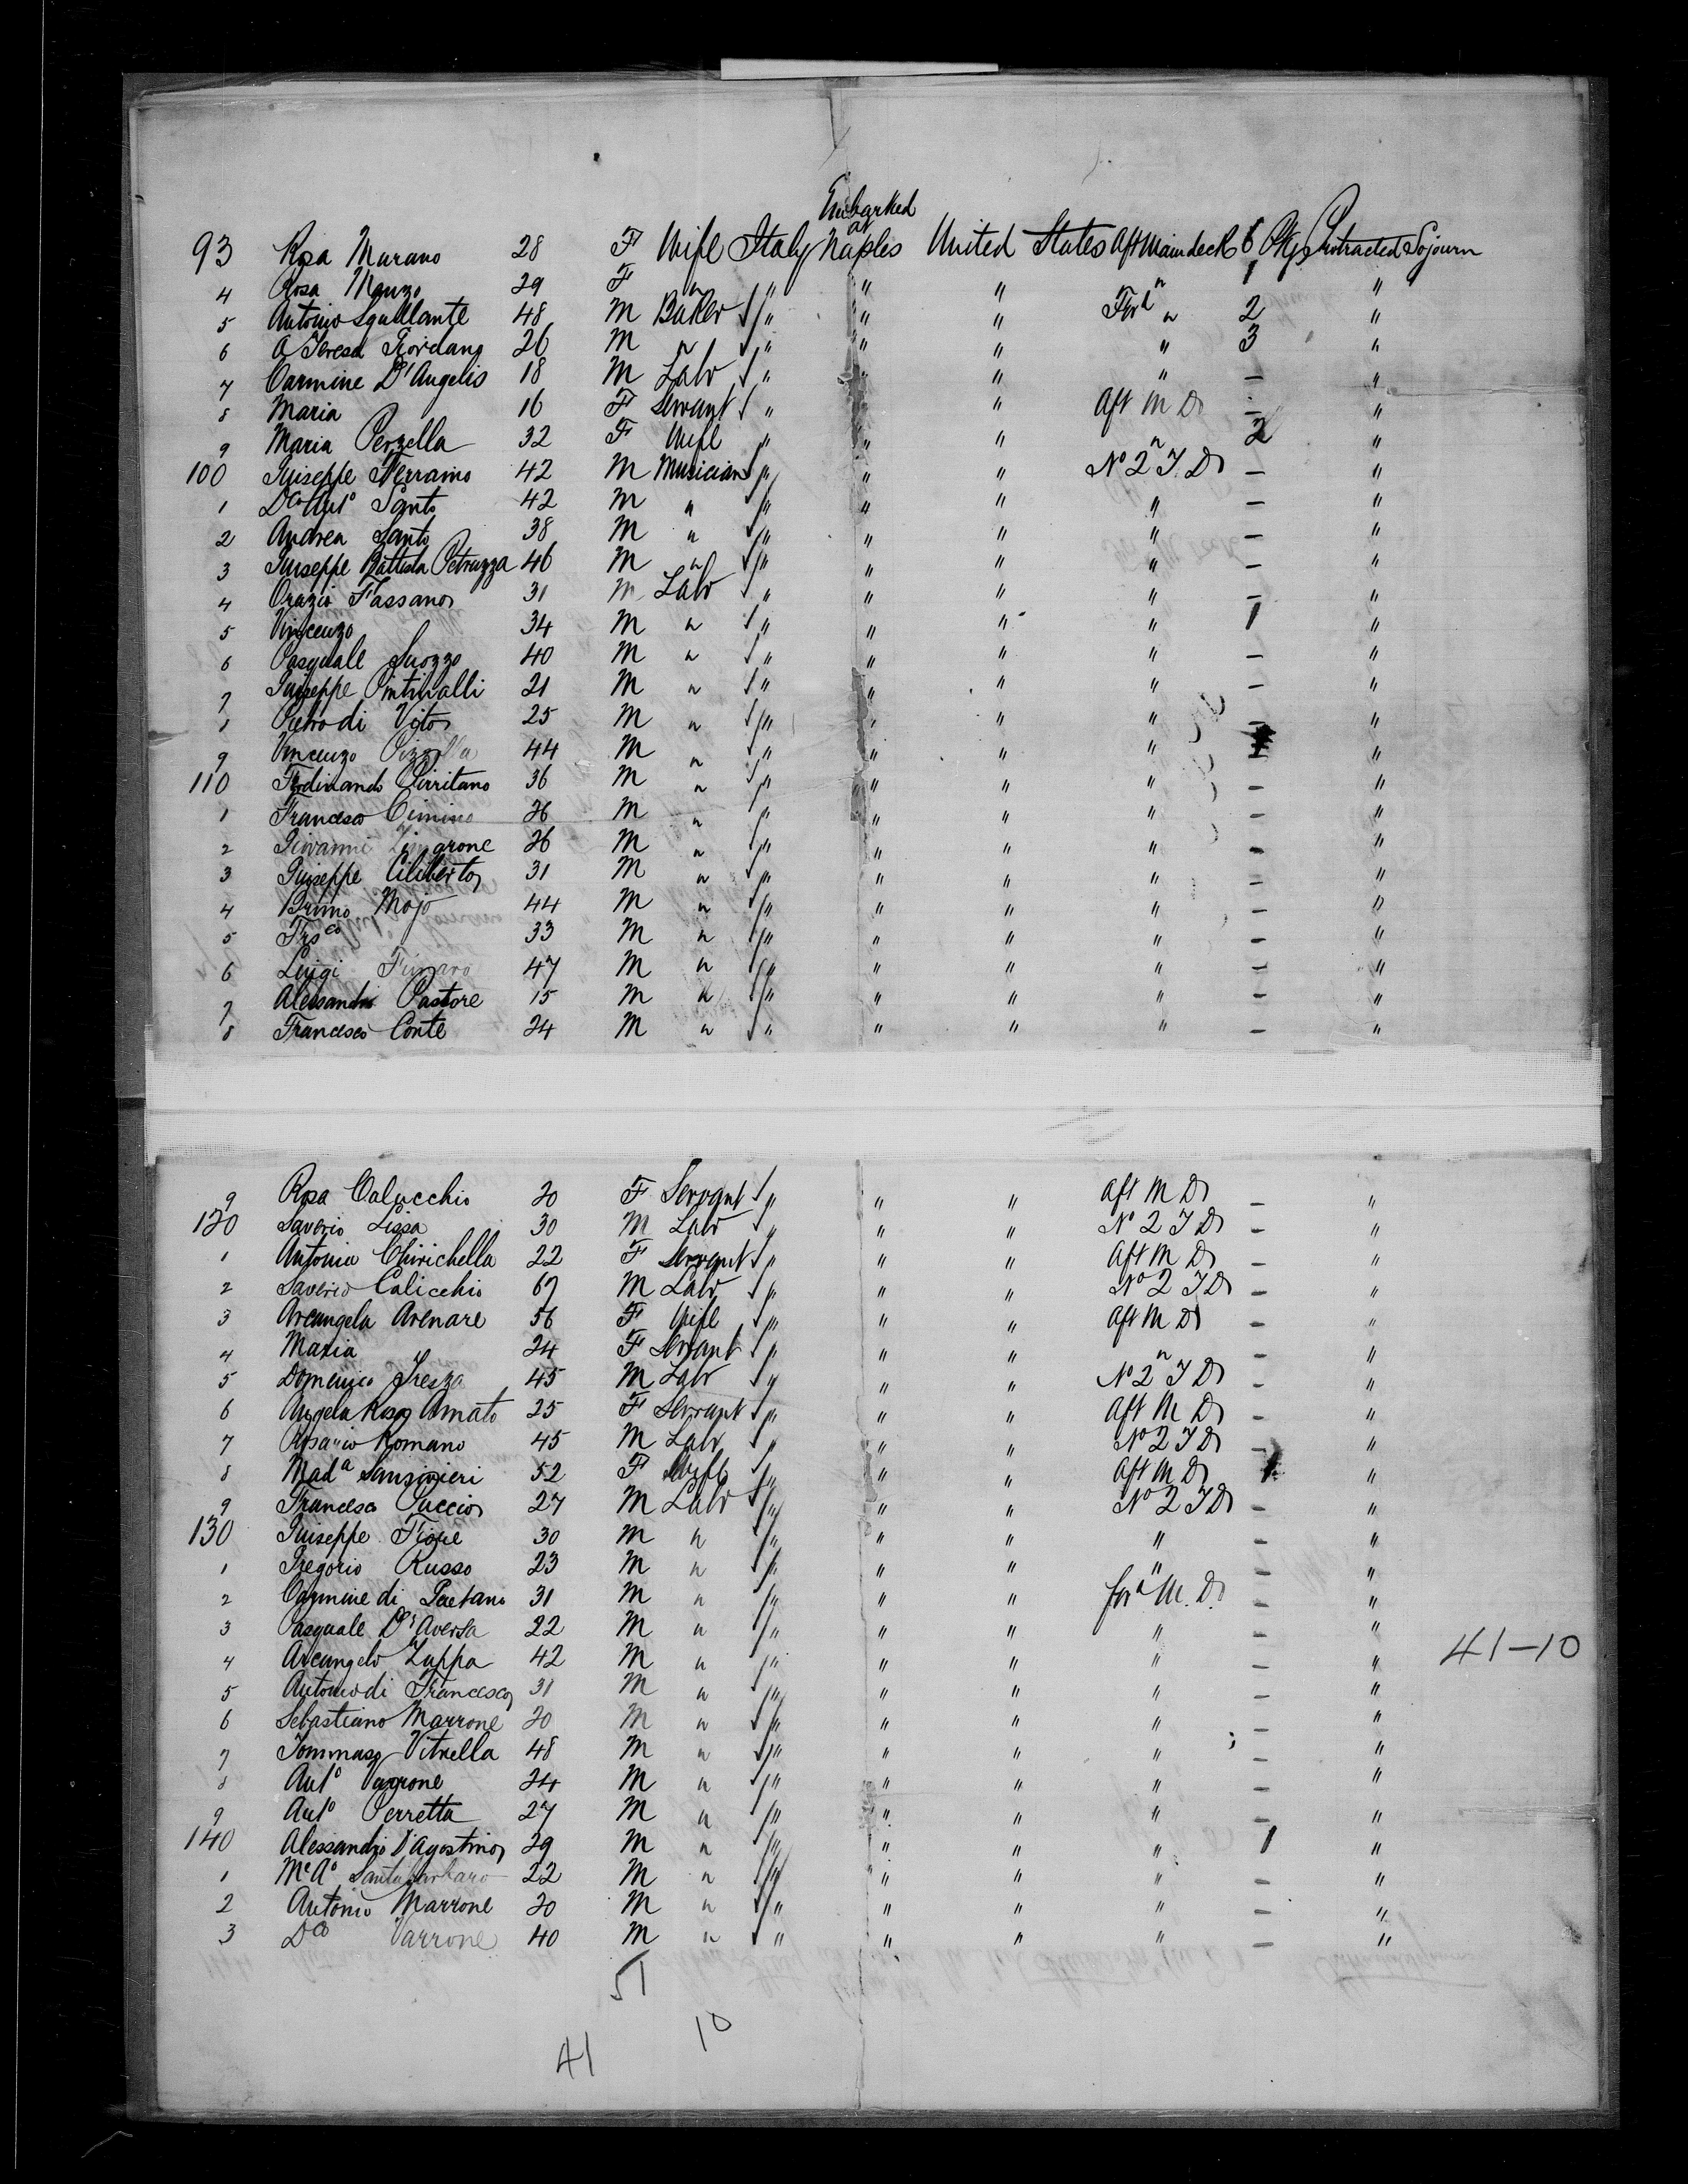 Embarked at
93 Rosa Murano 28 F Wife Italy Naples United States Aft Main deck 6 Pkgs Protracted Sojourn
4 Rosa Manzo 29 F " " " " " 1 "
5 Antonio Squillante 48 M Baker " " " Ford " 2 "
6 A Teresa Giordano 26 M " " " " " 3 "
7 Carmine D'Angelis 18 M Labr " " " " — "
8 Maria 16 F Servant " " " Aft M D — "
9 Maria Perzella 32 F Wife " " " " 2 "
100 Giuseppe Ferraino 42 M Musician " " " No 2 T. D — "
1 Dco Anto Santo 42 M " " " " " — "
2 Andrea Santo 38 M " " " " " — "
3 Giuseppe Battista Petruzza 46 M " " " " " — "
4 Orazio Fassano 31 M Labr " " " " — "
5 Vincenzo 34 M " " " " " 1 "
6 Pasquale Suozzo 40 M " " " " " — "
7 Giuseppe 21 M " " " " " — "
8 Pietro di Vito 25 M " " " " " — "
9 Vincenzo 44 M " " " " " "
110 Ferdinando Cirritano 36 M " " " " " — "
1 Francesco Cimino 26 M " " " " " — "
2 Giovanni Zingrone 26 M " " " " " — "
3 Giuseppe Ciliberto 31 M " " " " " — "
4 Bruno Mojo 44 M " " " " " — "
5 Frsco 33 M " " " " " — "
6 Luigi 47 M " " " " " — "
7 Alessandro Pastore 15 M " " " " " — "
8 Francesco Conte 24 M " " " " " — "
9 Rosa Calucchio 20 F Servant " " " Aft M D — "
120 Saverio Lissa 30 M Labr " " " No 2 T D — "
1 Antonia Chirichella 22 F Servant " " " Aft M D — "
2 Saverio Calicchio 67 M Labr " " " No 2 T D — "
3 Arcangela Arenare 56 F Wife " " " Aft M D — "
4 Maria 24 F Servant " " " " — "
5 Domenico 45 M Labr " " " No 2 T D — "
6 Angela Rosa Amato 25 F Servant " " " Aft M D — "
7 Rosario Romano 45 M Labr " " " No 2 T D — "
8 Mada 52 F Wife " " " Aft M D 1 "
9 Francesco Puccio 27 M Labr " " " No 2 T D — "
130 Giuseppe Fiore 30 M " " " " " — "
1 Gregorio Russo 23 M " " " " " — "
2 Carmine di Gaetano 31 M " " " " ford M. D. — "
3 Pasquale D'Aversa 22 M " " " " " — "
4 Arcangelo Zappa 42 M " " " " " — " 41-10
5 Antonio di Francesco 31 M " " " " " — "
6 Sebastiano Marrone 20 M " " " " " — "
7 Tommaso Vitrella 48 M " " " " " — "
8 Anto Varrone 24 M " " " " " — "
9 Anto Perretta 27 M " " " " " — "
140 Alessandro D'Agostino 29 M " " " " " 1 "
1 Mc Ao Santabarbaro 22 M " " " " " — "
2 Antonio Marrone 20 M " " " " " — "
3 Dco Varrone 40 M " " " " " — "
51
41 10